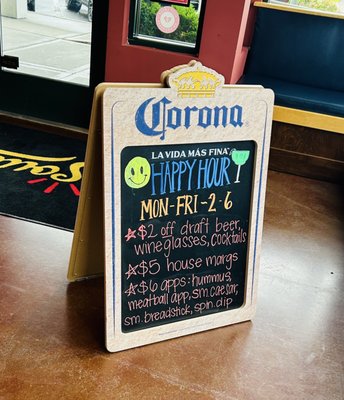 Corona
LA VIDA MÁS FINA
HAPPY HOUR
MON-FRI-2-6
$2 off draft beer,
wineglasses, cocktails
$5 house margs
$6 apps: hummus,
meatball app, sm. caesar,
sm. breadstick, spin. dip